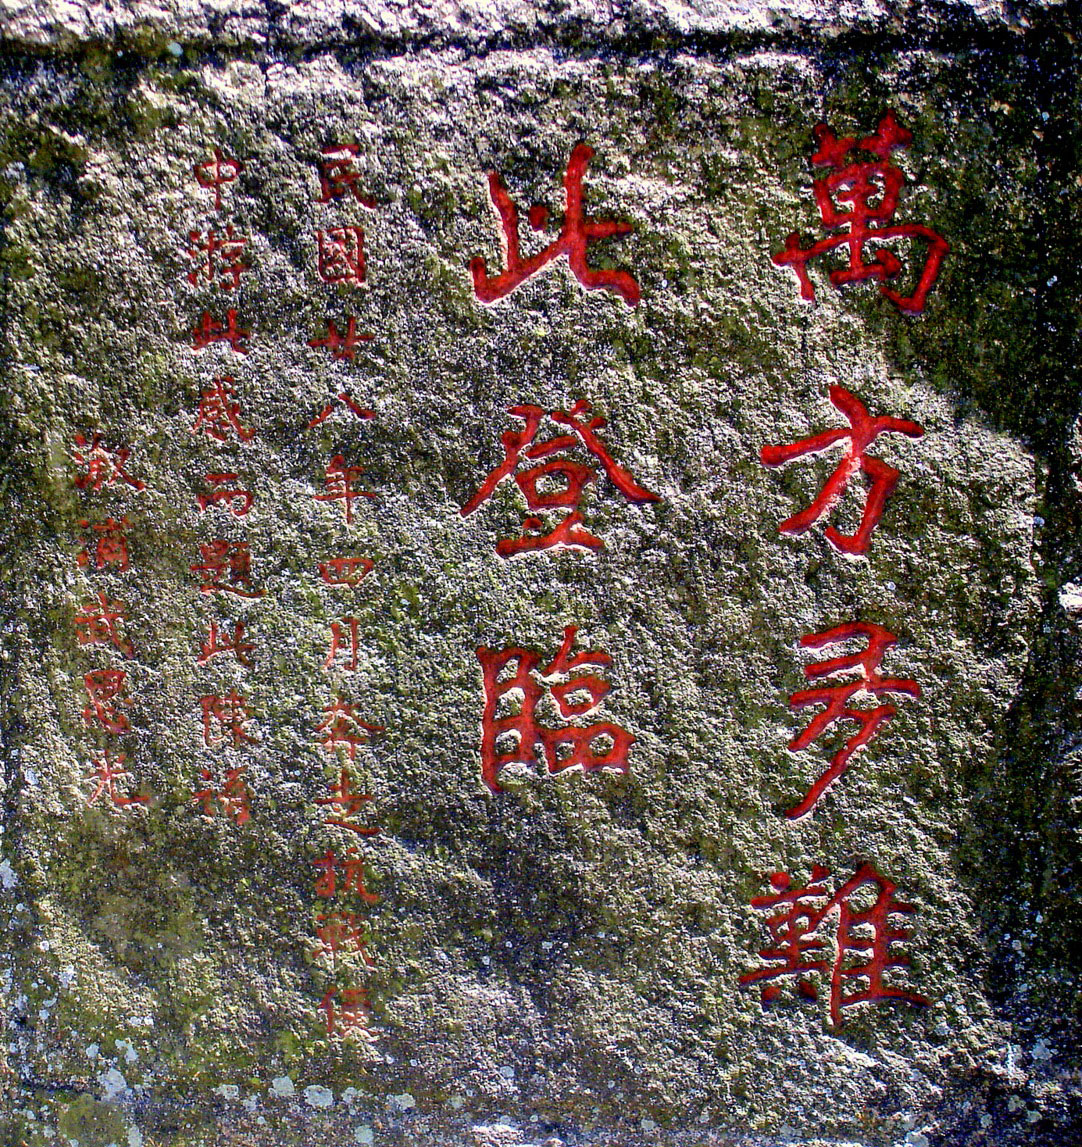 萬方多難
此登臨
民國廿八年四月抗戰
中游此感而題此陳
漵浦武思光